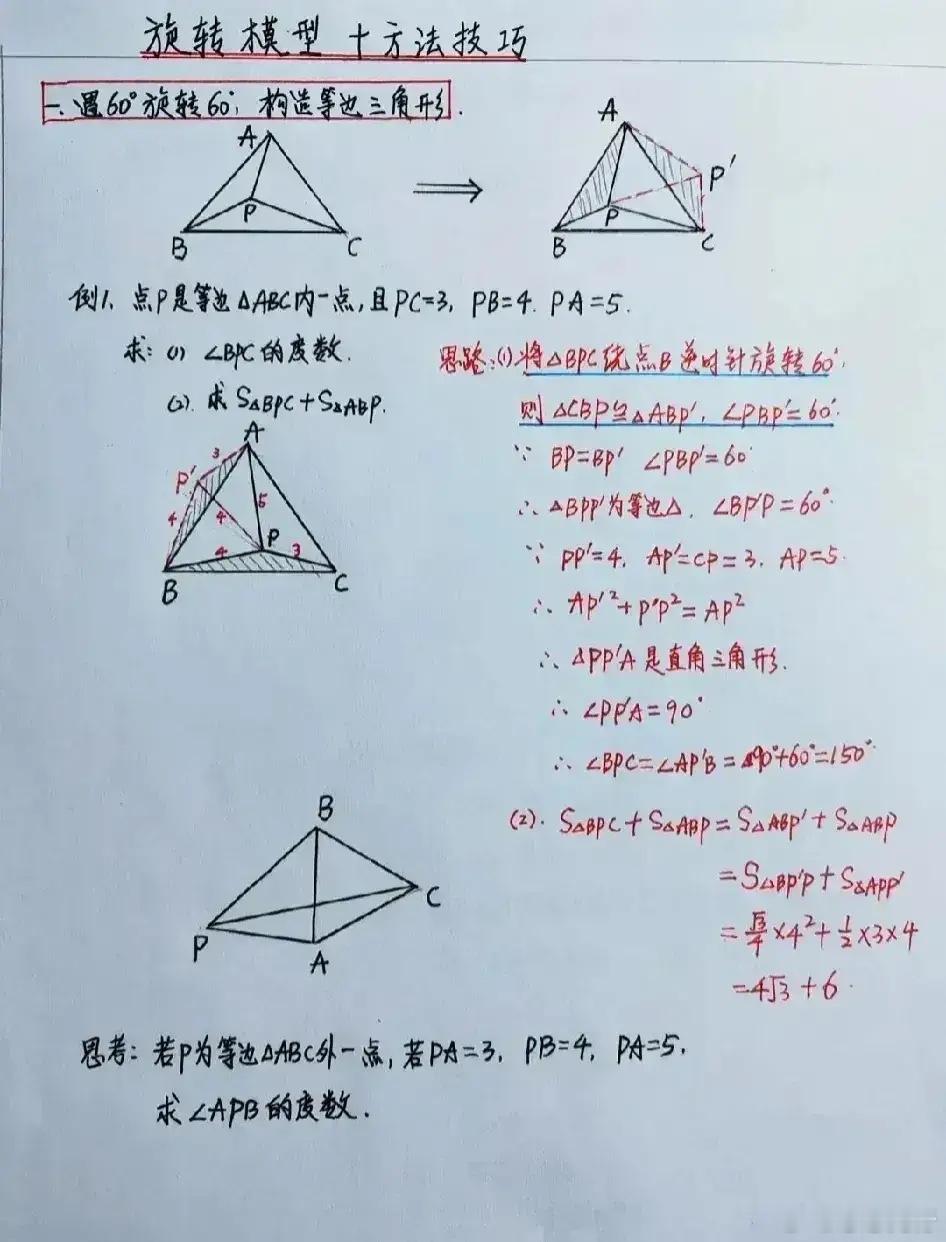 旋转模型 十方法技巧
一.遇60°旋转60°,构造等边三角形.
A
P
B
C
A
P'
P
B
C
例1. 点P是等边△ABC内一点,且PC=3, PB=4. PA=5.
求: (1) ∠BPC的度数.
(2). 求S△BPC+S△ABP.
思路:(1)将△BPC绕点B逆时针旋转60°.
则△CBP≌△ABP', ∠PBP'=60°.
∵ BP=BP' ∠PBP'=60°
∴△BPP'为等边△, ∠BP'P=60°.
∵ PP'=4, AP'=CP=3. AP=5.
∴ AP'²+P'P²=AP²
∴ △PP'A是直角三角形.
∴ ∠PP'A=90°
∴ ∠BPC=∠AP'B=90°+60°=150°
A
3
P'
5
4
4
P
4
3
B
C
(2). S△BPC+S△ABP=S△ABP'+S△ABP
=S△BP'P+S△APP'
=√3/4×4²+1/2×3×4
=4√3+6.
B
C
P
A
思考: 若P为等边△ABC外一点,若PA=3, PB=4, PA=5.
求∠APB的度数.